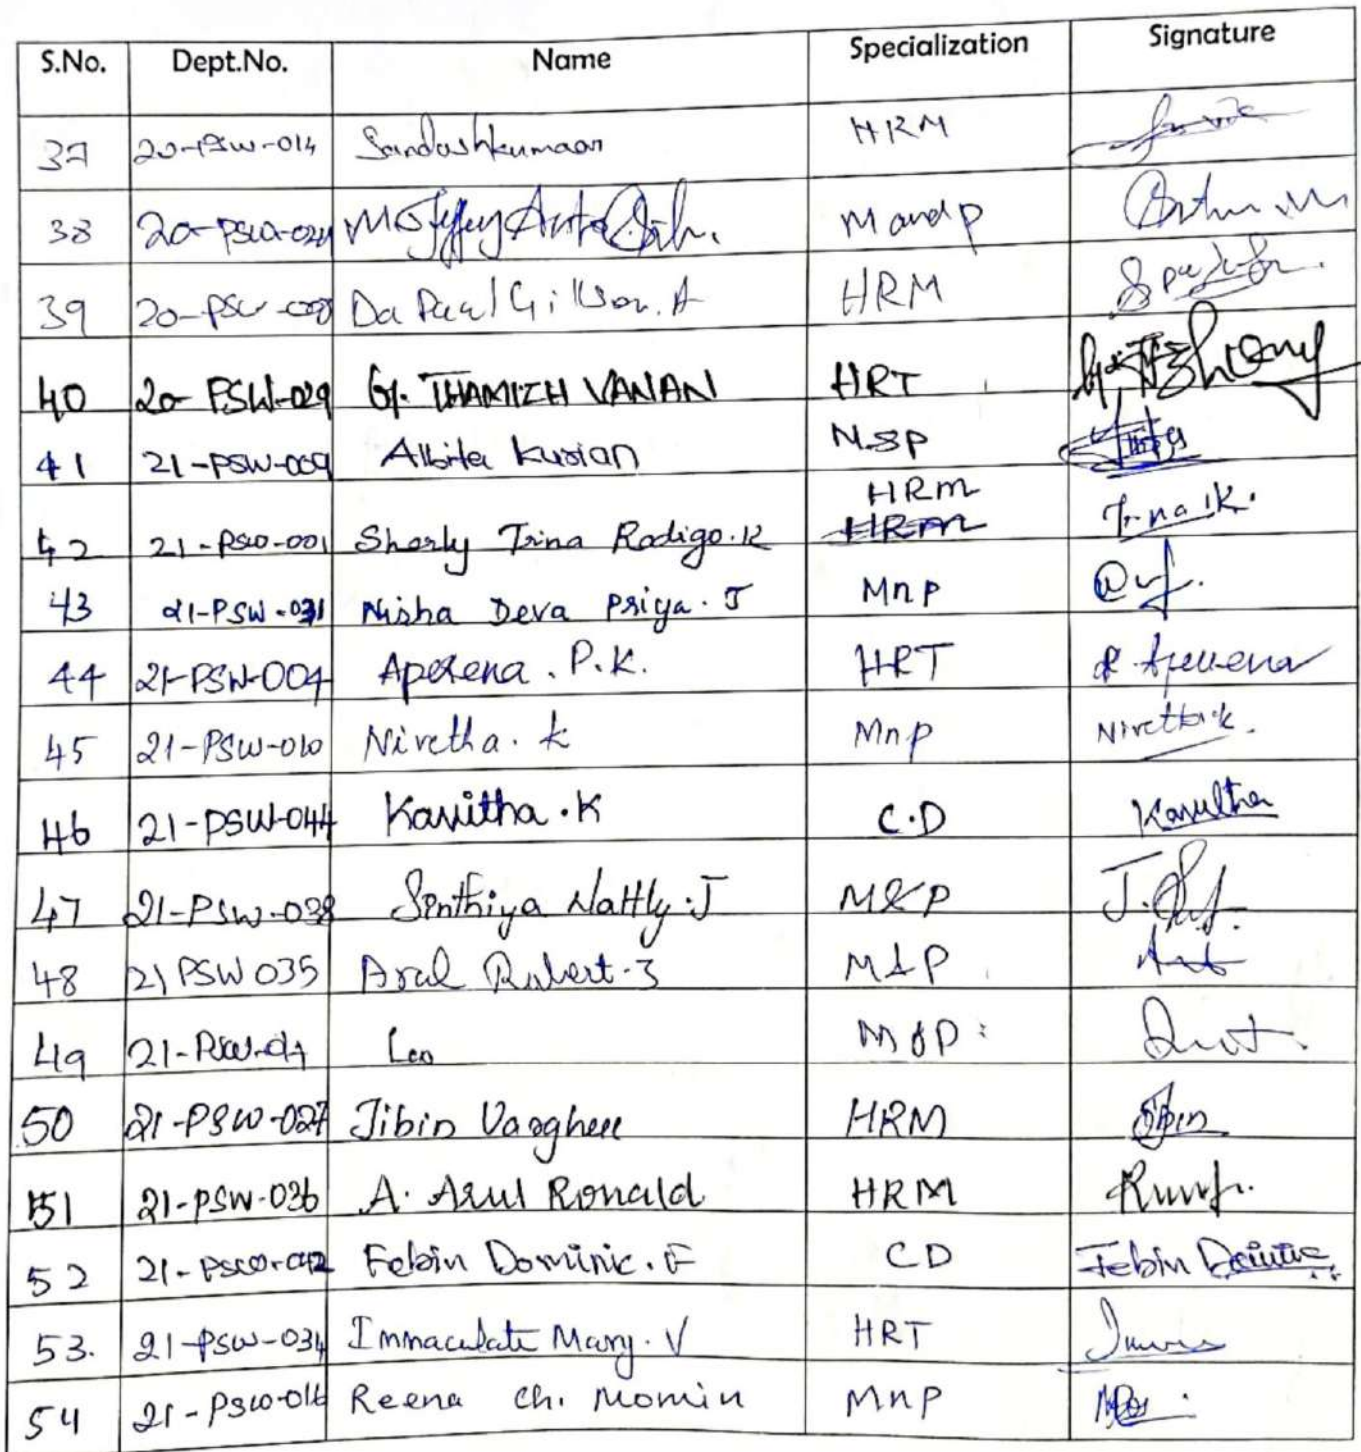 S.No. Dept.No. Name Specialization Signature
37 20-PSW-014 Sandoshkumaar HRM
38 20-PSW-024 Jeffrey Anto M and P
39 20-PSW-008 Da Paul Gilkson. A HRM
40 20-PSW-029 G. THAMIZH VANAN HRT
41 21-PSW-009 Albita Kurian M&P
HRM
42 21-PSW-001 Sherly Trina Rodigo.R HRM Trina R.
43 21-PSW-031 Nisha Deva Priya. J MnP
44 21-PSW-004 Aperena. P.K. HRT
45 21-PSW-010 Nivetha. k MnP Nivetha.k.
46 21-PSW-044 Kavitha.K C.D Kavitha
47 21-PSW-038 Sinthiya Nattly.J M&P
48 21 PSW 035 Arul Robert.J M&P
49 Leo M&P
50 21-PSW-027 Jibin Varghese HRM Jibin
51 21-PSW-036 A. Arul Ronald HRM
52 21-PSW-042 Febin Dominic. F CD Febin Dominic
53. 21-PSW-034 Immaculate Mary. V HRT
54 21-PSW-016 Reena Ch. Momin MnP